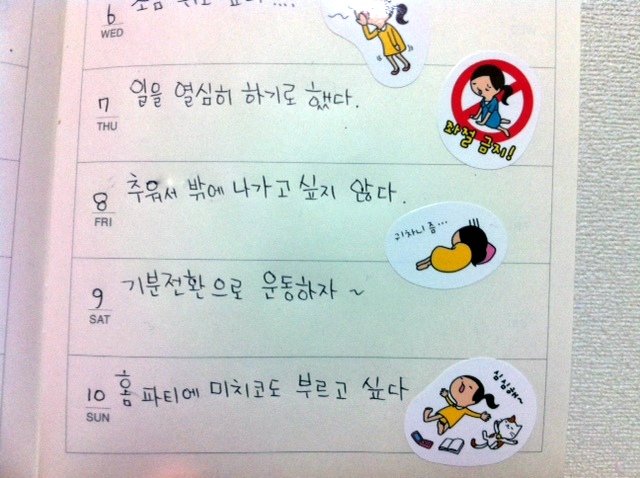 6
WED
7
THU
일을 열심히 하기로 했다.
좌절 금지!
8
FRI
추워서 밖에 나가고 싶지 않다.
귀차니즘...
9
SAT
기분전환으로 운동하자~
10
SUN
홈파티에 미치코도 부르고 싶다
심심해~